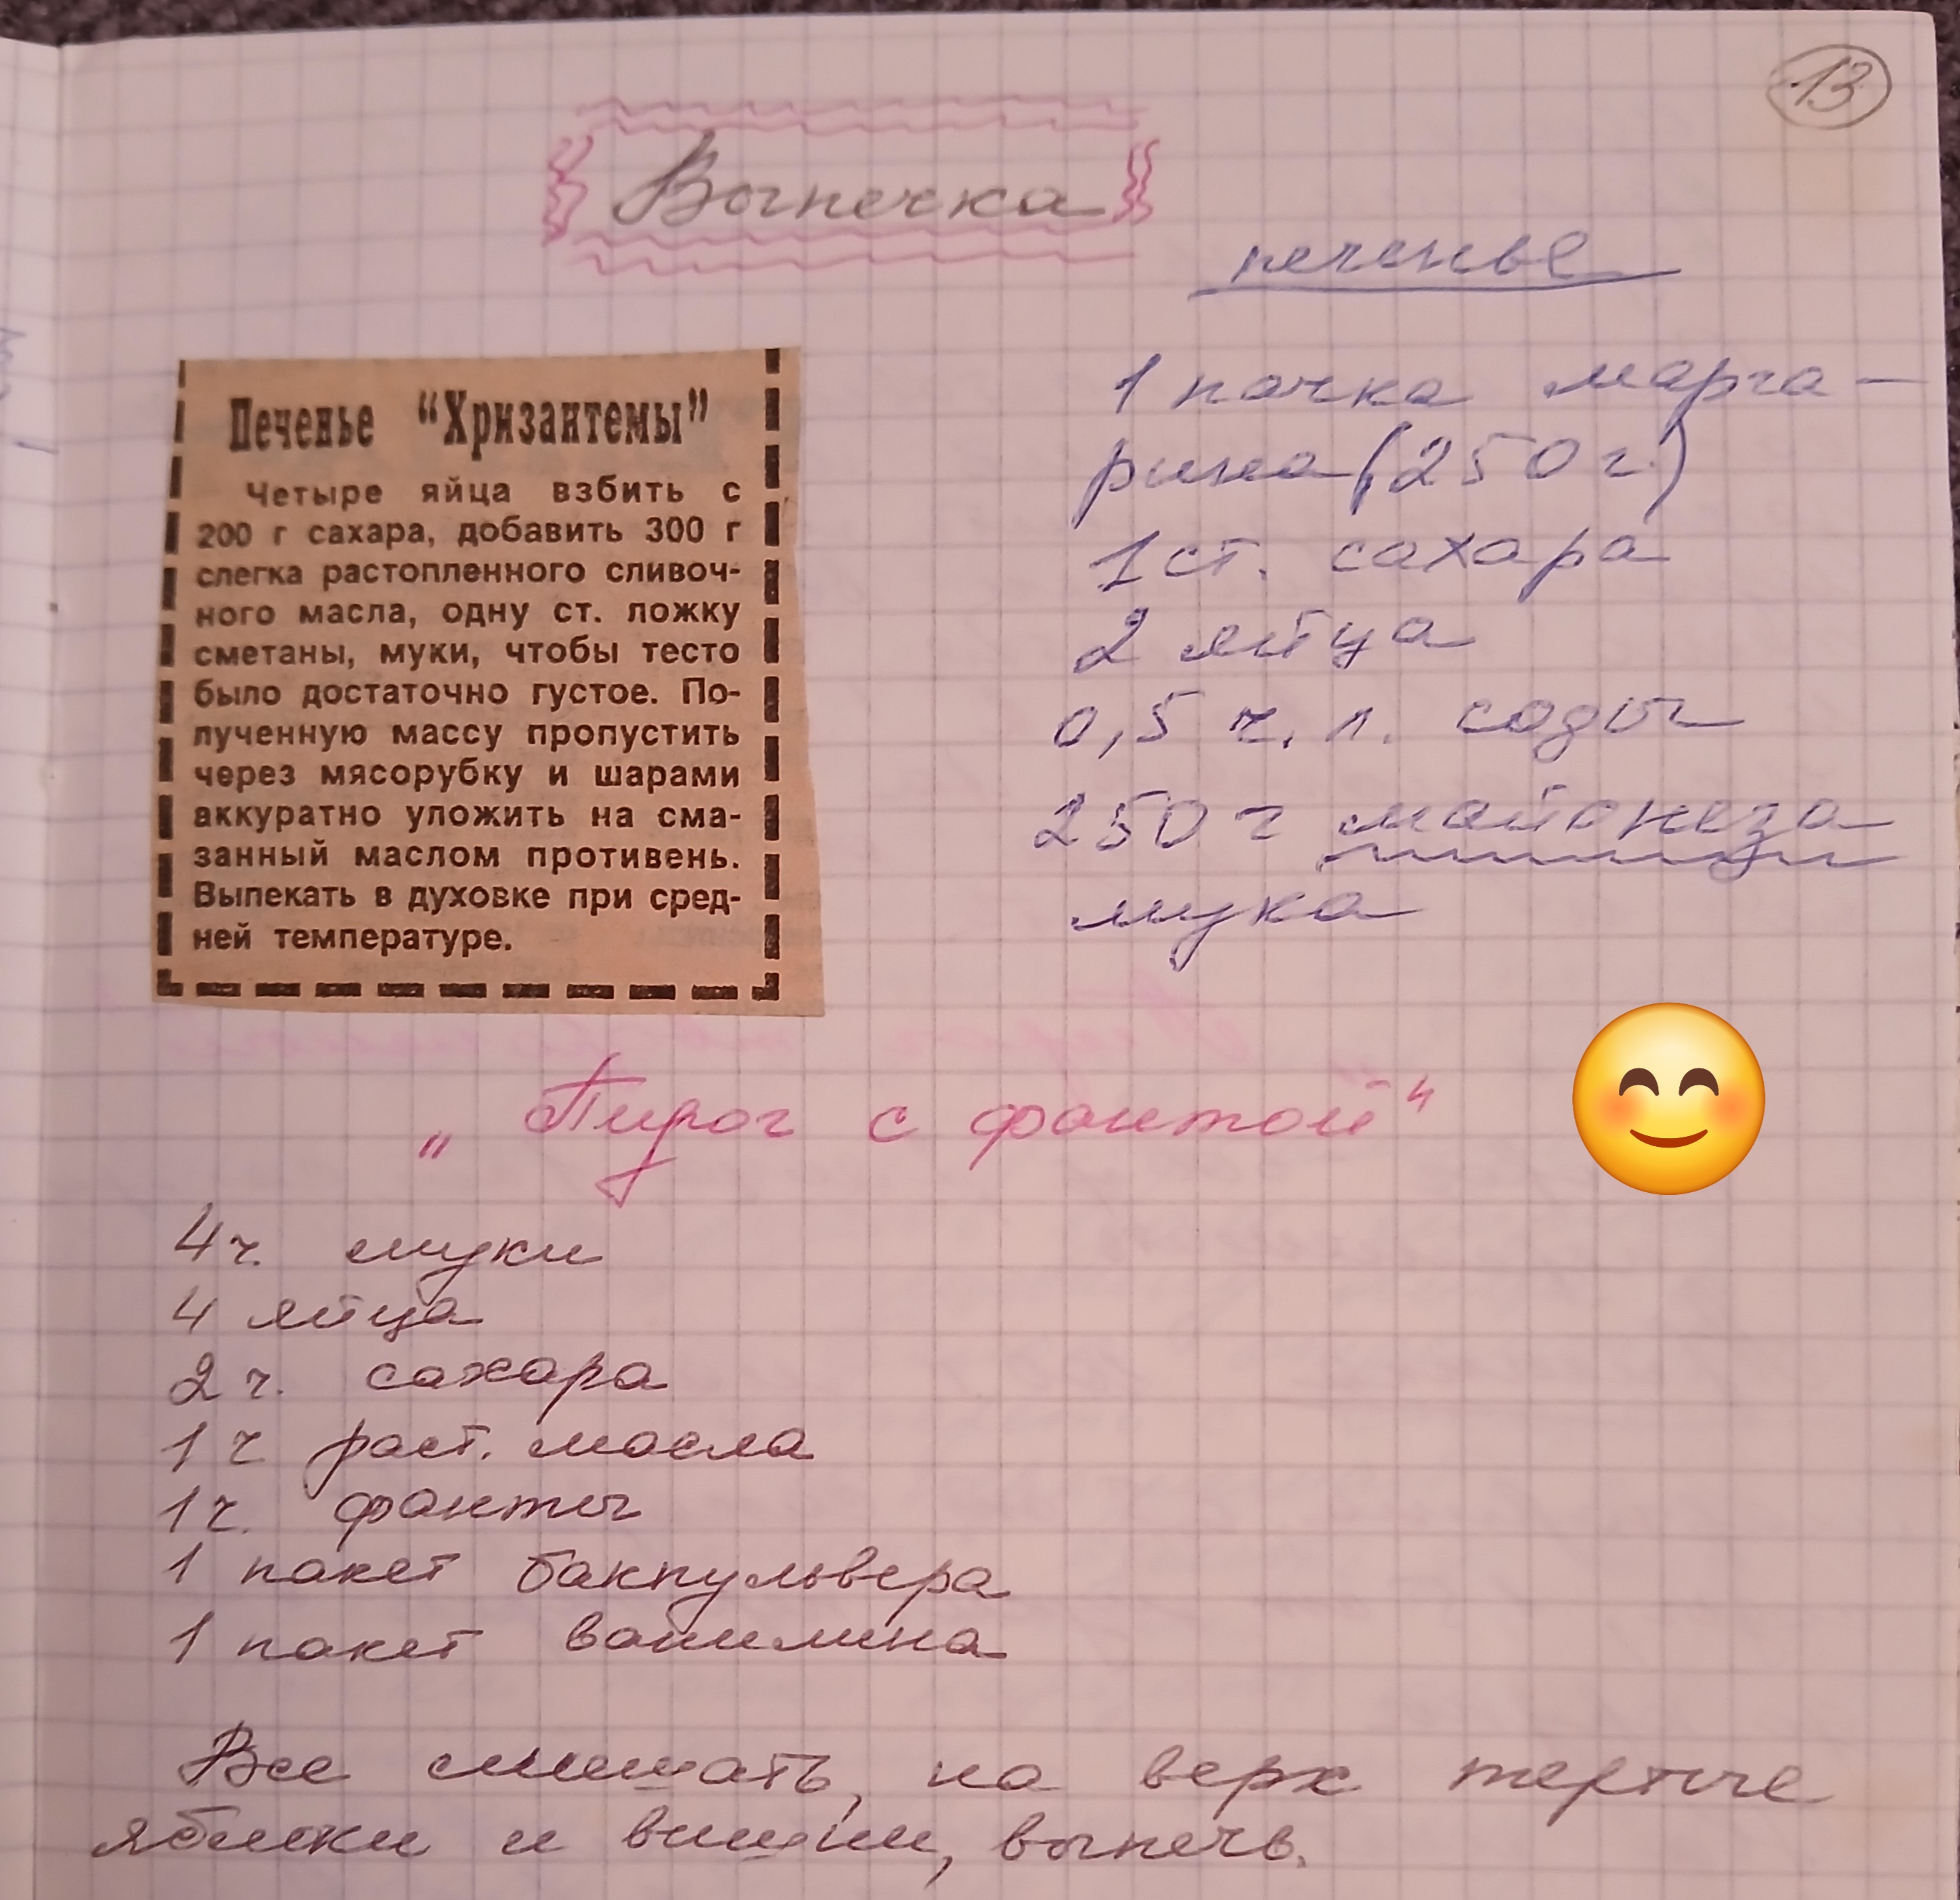 13
Выпечка
Печенье “Хризантемы”
Четыре яйца взбить с
200 г сахара, добавить 300 г
слегка растопленного сливоч-
ного масла, одну ст. ложку
сметаны, муки, чтобы тесто
было достаточно густое. По-
лученную массу пропустить
через мясорубку и шарами
аккуратно уложить на сма-
занный маслом противень.
Выпекать в духовке при сред-
ней температуре.
печенье
1 пачка марга-
рина (250 г)
1 ст. сахара
2 яйца
0,5 ч. л. соды
250 г майонеза
мука
„Пирог с фантой“
4 ч. муки
4 яйца
2 ч. сахара
1 ч раст. масла
1 ч. фанты
1 пакет бакпульвера
1 пакет ванилина
Все смешать, на верх тертые
яблоки и вишни, выпечь.